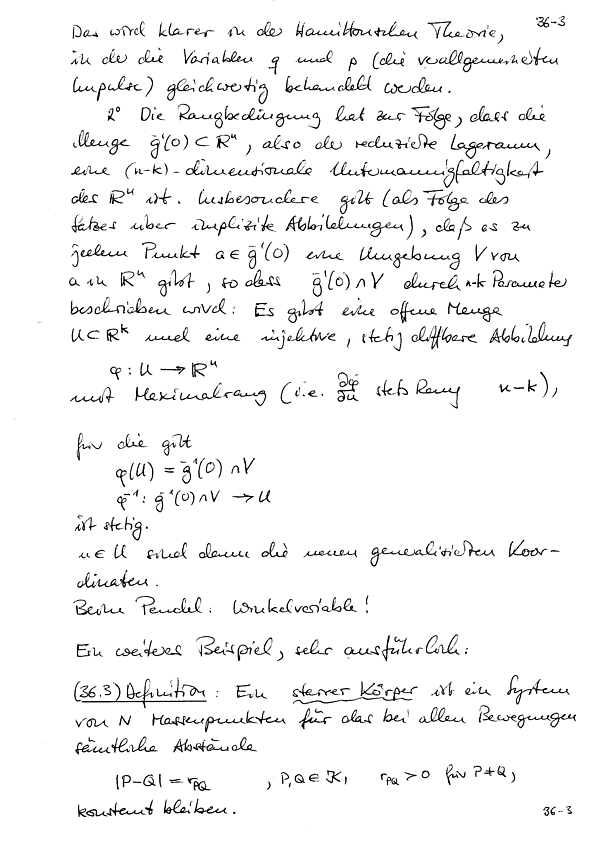 36-3
Das wird klarer in der Hamiltonschen Theorie,
in der die Variablen q und p (die verallgemeinerten
Impulse) gleichwertig behandelt werden.
2° Die Rangbedingung hat zur Folge, dass die
Menge g⁻¹(0) ⊂ ℝⁿ, also der reduzierte Lageraum,
eine (n-k)-dimensionale Untermannigfaltigkeit
des ℝⁿ ist. Insbesondere gilt (als Folge des
Satzes über implizite Abbildungen), daß es zu
jedem Punkt a ∈ g⁻¹(0) eine Umgebung V von
a in ℝⁿ gibt, so dass g⁻¹(0) ∩ V durch n-k Parameter
beschrieben wird: Es gibt eine offene Menge
U ⊂ ℝᵏ und eine injektive, stetig diffbare Abbildung
φ : U → ℝⁿ
mit Maximalrang (i.e. ∂φ/∂u stets Rang n-k),
für die gilt
φ(U) = g⁻¹(0) ∩ V
φ⁻¹ : g⁻¹(0) ∩ V → U
ist stetig.
u ∈ U sind dann die neuen generalisierten Koor-
dinaten.
Beim Pendel: Winkelvariable!
Ein weiteres Beispiel, sehr ausführlich:
(36.3) Definition: Ein starrer Körper ist ein System
von N Massenpunkten für das bei allen Bewegungen
sämtliche Abstände
|P-Q| = r_PQ , P,Q ∈ K, r_PQ > 0 für P ≠ Q,
konstant bleiben.
36-3